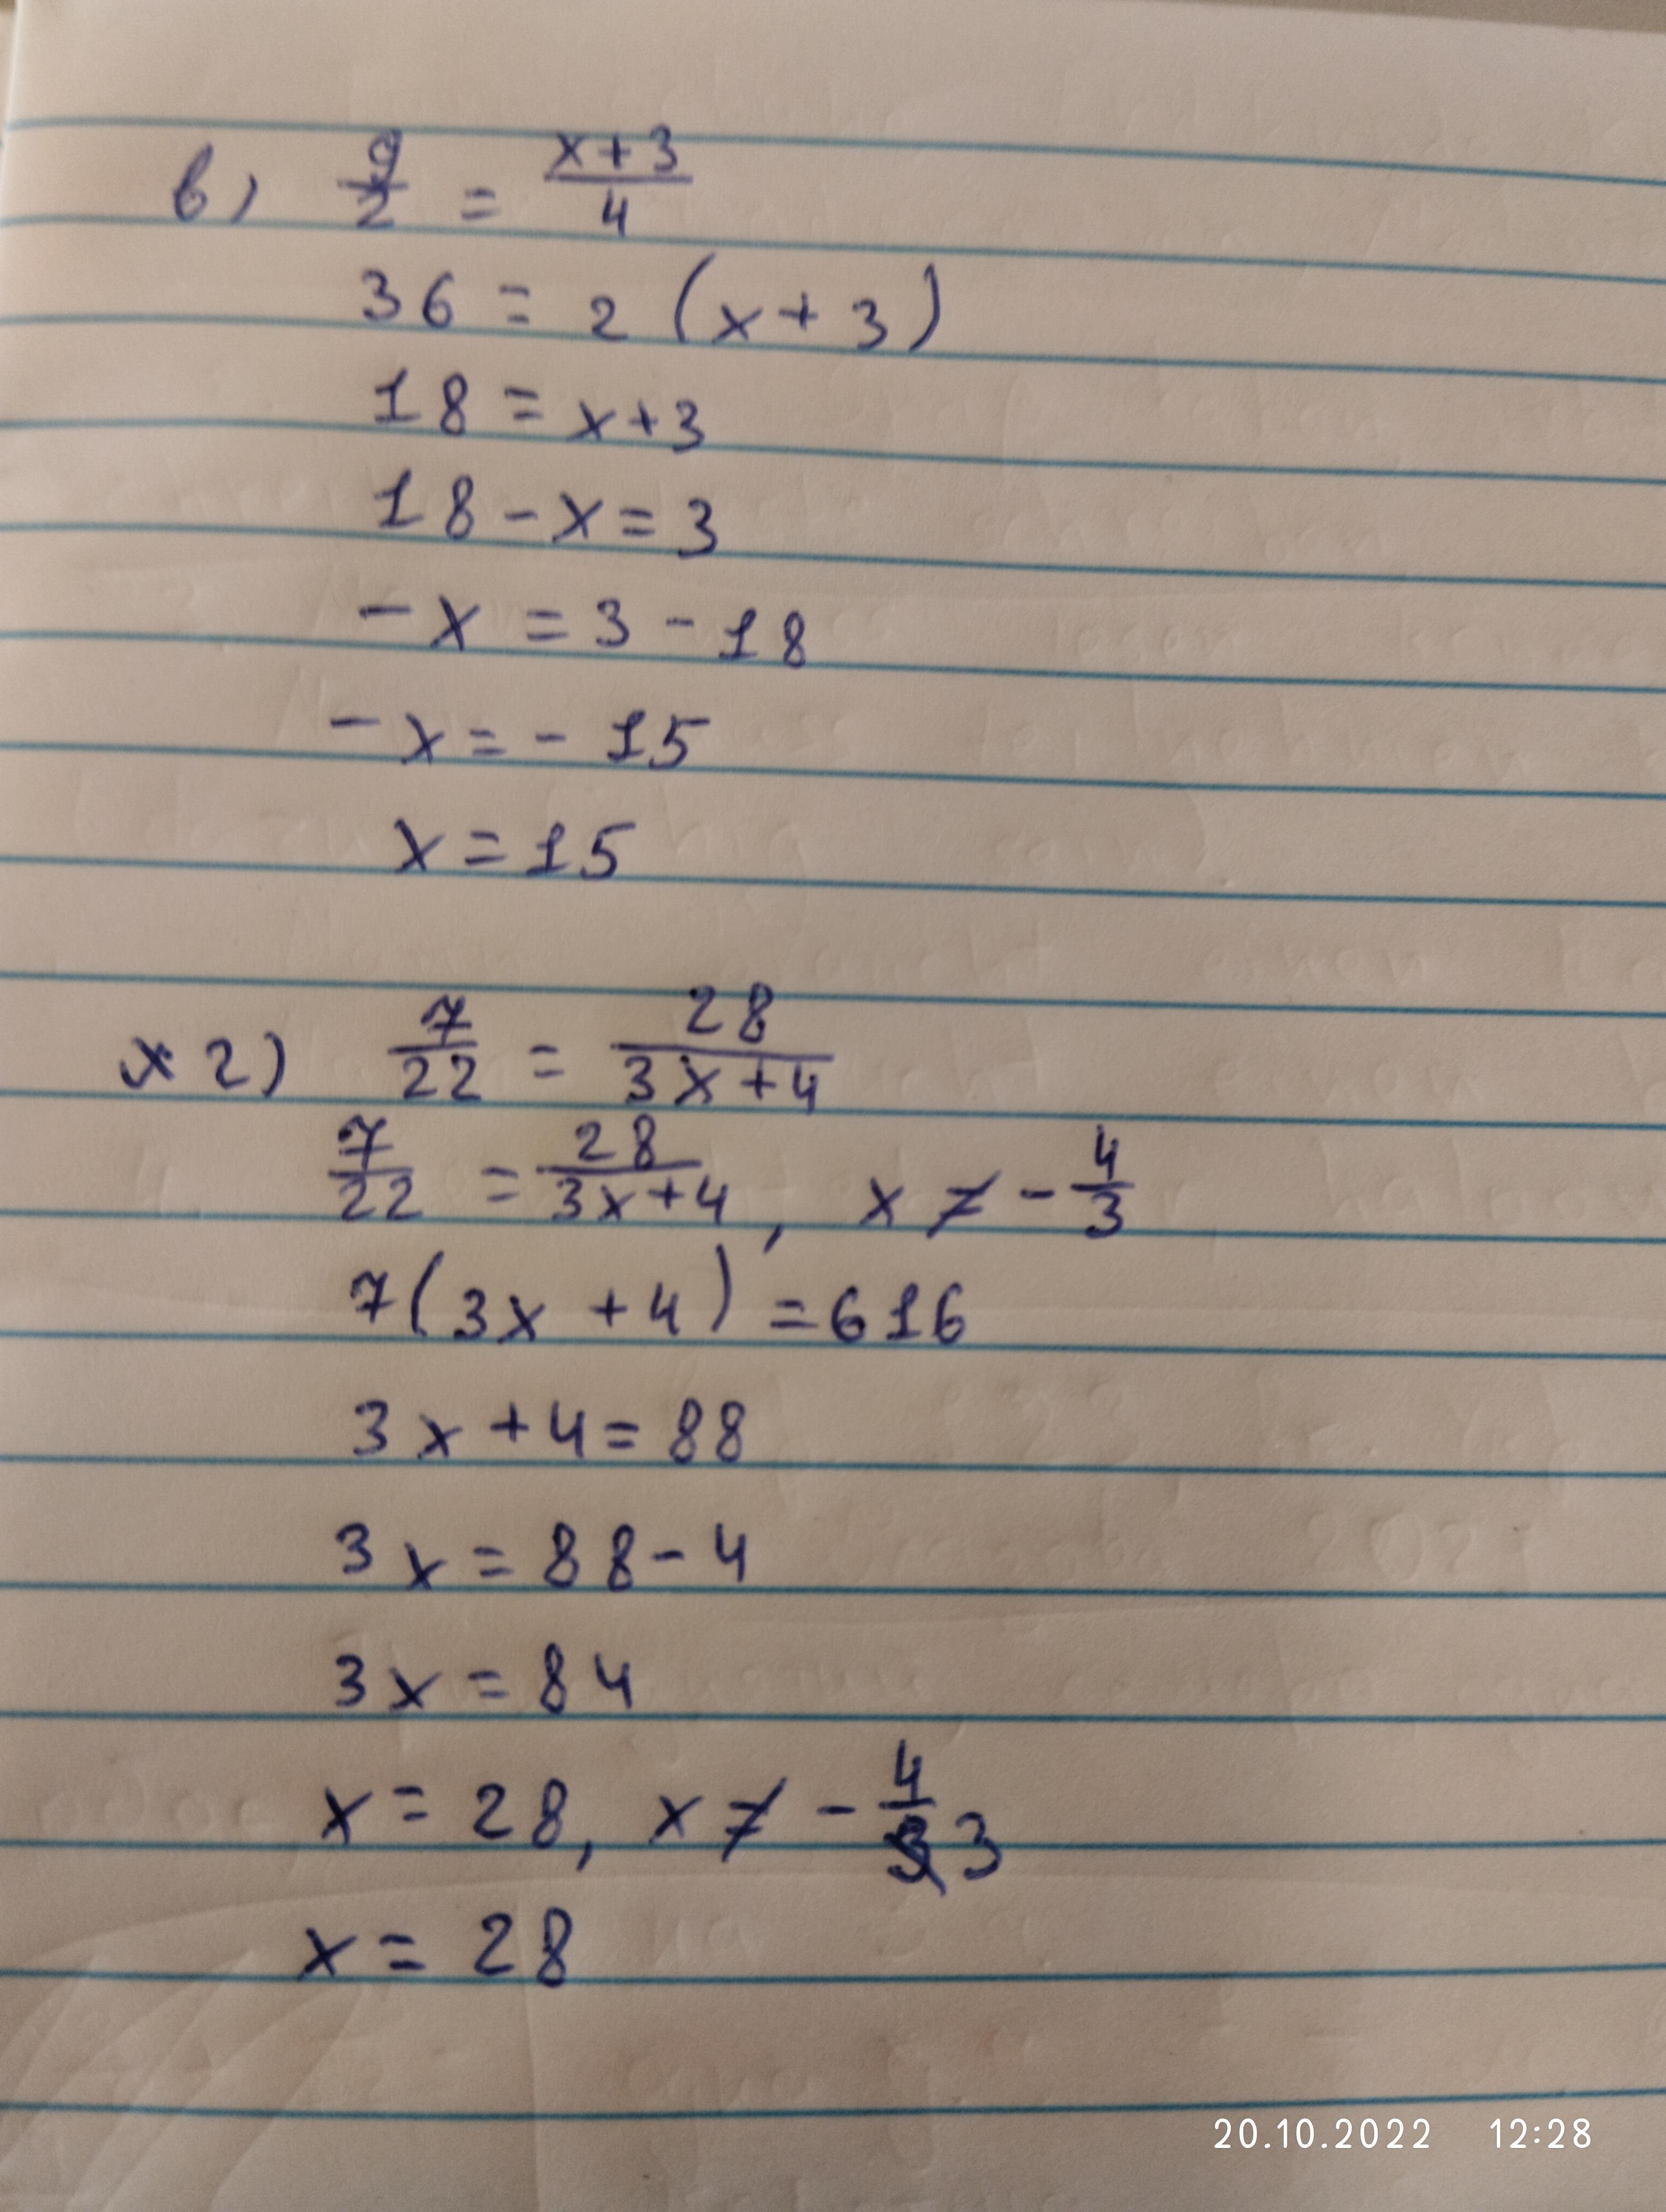 в) 9/2 = (x+3)/4
36 = 2 (x+3)
18 = x+3
18 - x = 3
- x = 3 - 18
- x = - 15
x = 15
x 2) 7/22 = 28/(3x+4)
7/22 = 28/(3x+4), x ≠ - 4/3
7(3x +4) = 616
3x + 4 = 88
3x = 88 - 4
3x = 84
x = 28, x ≠ - 4/3
x = 28
20.10.2022 12:28